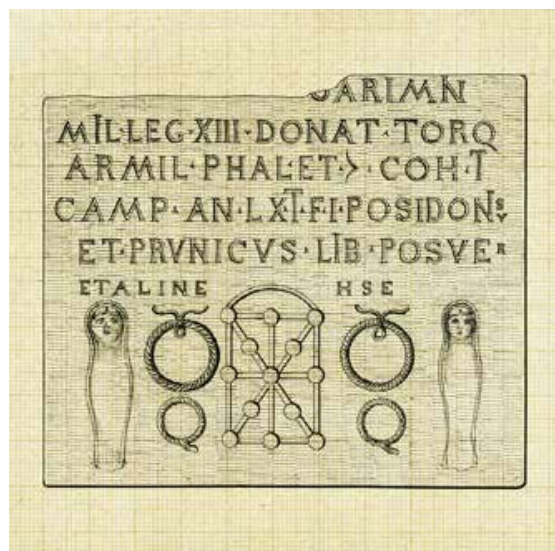 ARIMN
MIL·LEG·XIII·DONAT·TORQ
ARMIL·PHAL·ET·>·COH·I
CAMP·AN·LXI·FI·POSIDONVS
ET·PRVNICVS·LIB·POSVER
ETALINE HSE